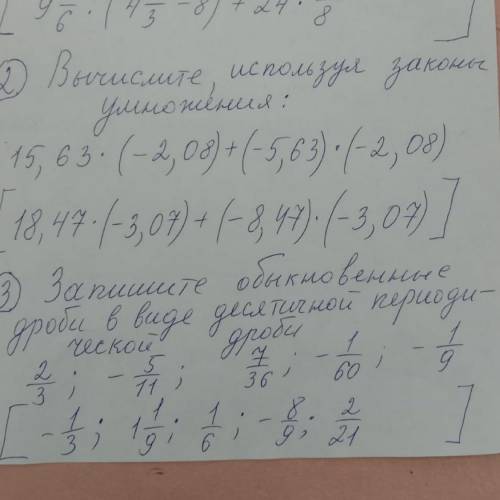 [ 9 —/6 · (4 —/3 − 8) + 24 · —/8 ]
② Вычислите, используя законы
умножения:
15,63 · (−2,08) + (−5,63) · (−2,08)
[18,47 · (−3,07) + (−8,47) · (−3,07)]
③ Запишите обыкновенные
дроби в виде десятичной периоди-
ческой дроби
2/3; −5/11; 7/36; −1/60; −1/9
[−1/3; 1 1/9; 1/6; −8/9; 2/21]